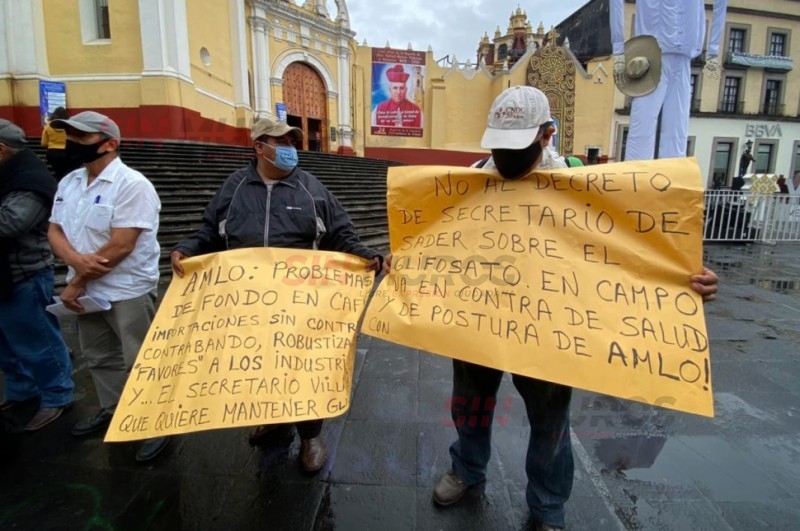 AMLO: PROBLEMAS
DE FONDO EN CAFÉ
IMPORTACIONES SIN CONTR
CONTRABANDO, ROBUSTIZA
"FAVORES" A LOS INDUSTRI
Y... EL SECRETARIO VILL
QUE QUIERE MANTENER GL
NO AL DECRETO
DE SECRETARIO DE
SADER SOBRE EL
GLIFOSATO. EN CAMPO
VA EN CONTRA DE SALUD
CON DE POSTURA DE AMLO!
BBVA
SIN MUROS